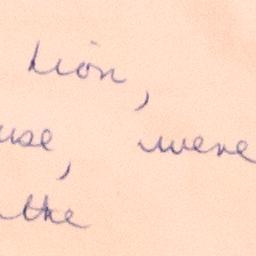 Lion,
use, were
the